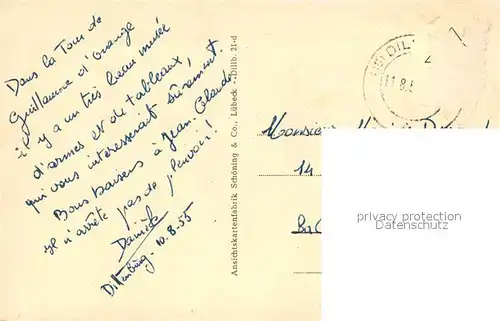 Dans la Tour de
Guillaume d'orange
il y a un très beau musée
d'armes et de tableaux,
qui vous intéresserait sûrement.
Bons baisers à Jean-Claude.
Il n'arrête pas de pleuvoir!
Daniel
Dillenburg-10.8.55
Ansichtskartenfabrik Schöning & Co., Lübeck · Dillb. 21-d
DIL
11.8.5
Monsieur
14
privacy protection
AnsichtskartenVersand.com